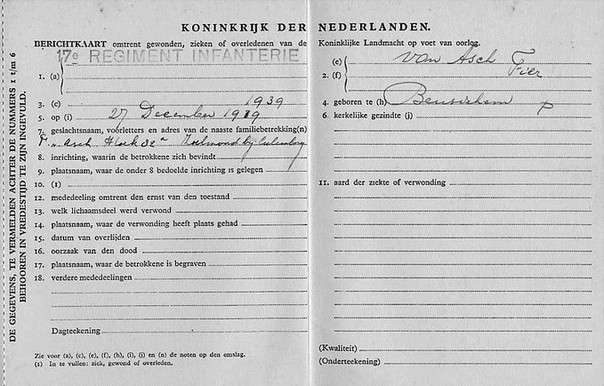 KONINKRIJK DER NEDERLANDEN.
BERICHTKAART omtrent gewonden, zieken of overledenen van de Koninklijke Landmacht op voet van oorlog.
17e REGIMENT INFANTERIE
1. (a)
(e) van Asch
2. (f) Fier
3. (c) 1939
4. geboren te (h) Beusichem
5. op (i) 27 December 1919
6. kerkelijke gezindte (j)
7. geslachtsnaam, voorletters en adres van de naaste familiebetrekking(n)
8. inrichting, waarin de betrokkene zich bevindt
9. plaatsnaam, waar de onder 8 bedoelde inrichting is gelegen
10. (1)
11. aard der ziekte of verwonding
12. mededeeling omtrent den ernst van den toestand
13. welk lichaamsdeel werd verwond
14. plaatsnaam, waar de verwonding heeft plaats gehad
15. datum van overlijden
16. oorzaak van den dood
17. plaatsnaam, waar de betrokkene is begraven
18. verdere mededeelingen
Dagteekening
(Kwaliteit)
(Onderteekening)
Zie voor (a), (c), (e), (f), (h), (i), (j) en (n) de noten op den omslag.
(1) In te vullen: ziek, gewond of overleden.
DE GEGEVENS, TE VERMELDEN ACHTER DE NUMMERS 1 t/m 6
BEHOOREN IN VREDESTIJD TE ZIJN INGEVULD.